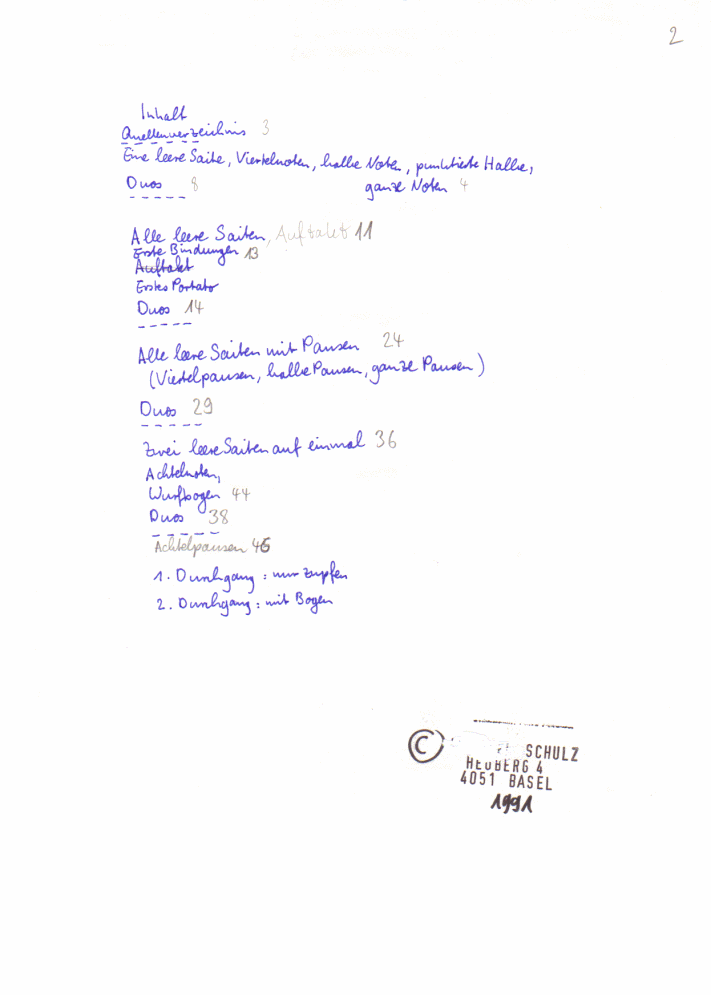 2
Inhalt
Quellenverzeichnis 3
Eine leere Saite, Viertelnoten, halbe Noten, punktierte Halbe,
Duos 8 ganze Noten 4
Alle leere Saiten, Auftakt 11
Erste Bindungen 13
Auftakt
Erstes Portato
Duos 14
Alle leere Saiten mit Pausen 24
(Viertelpausen, halbe Pausen, ganze Pausen)
Duos 29
Zwei leere Saiten auf einmal 36
Achtelnoten,
Wurfbogen 44
Duos 38
Achtelpausen 46
1. Durchgang: nur zupfen
2. Durchgang: mit Bogen
© SCHULZ
HEUBERG 4
4051 BASEL
1991